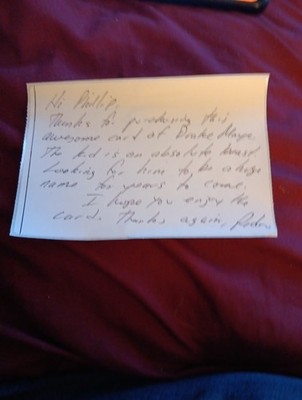 Hi Phillip,
Thanks for purchasing this
awesome card of Drake Maye.
The kid is an absolute beast.
Looking for him to be a huge
name for years to come.
I hope you enjoy the
card. Thanks again, Pedro